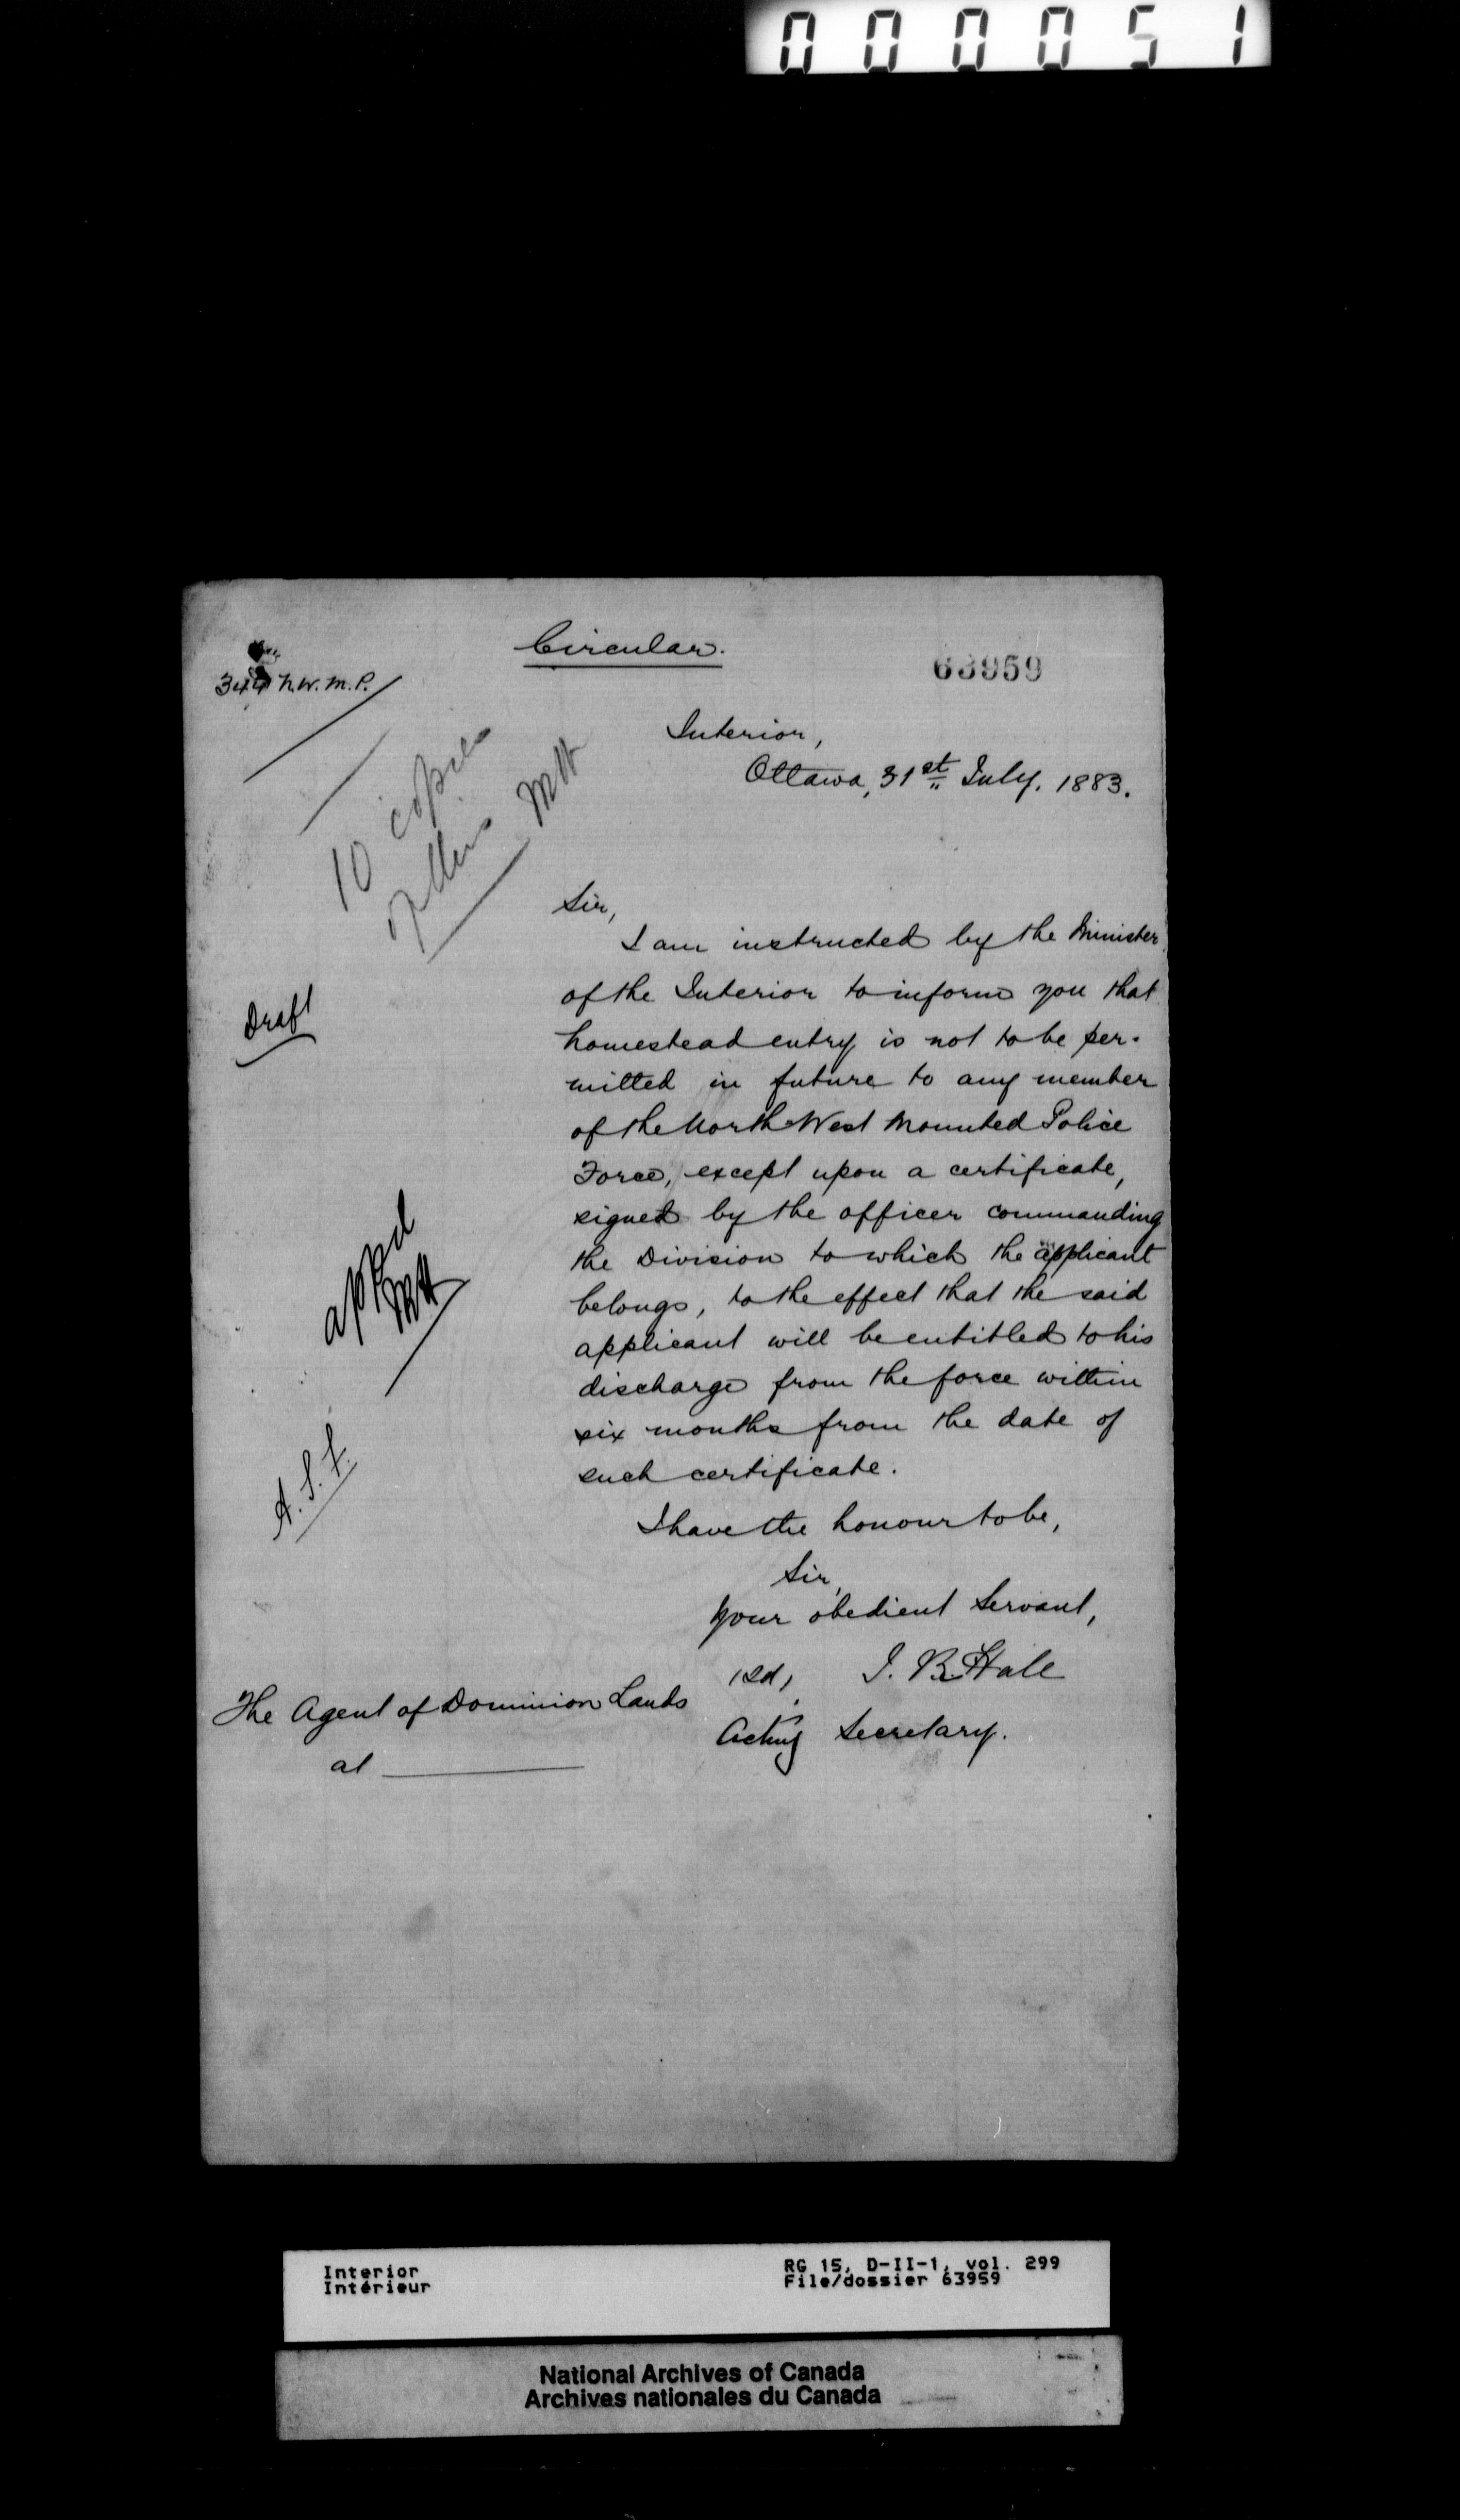 000051
Circular.
344 N.W.M.P.
63959
Interior,
Ottawa, 31st July. 1883.
10 copies
of this MH
Sir,
I am instructed by the Minister
of the Interior to inform you that
homestead entry is not to be per-
mitted in future to any member
of the North West Mounted Police
Force, except upon a certificate,
signed by the officer commanding
the Division to which the applicant
belongs, to the effect that the said
applicant will be entitled to his
discharge from the force within
six months from the date of
such certificate.
Draft
appd
MH
A.S.F.
I have the honour to be,
Sir,
Your obedient Servant,
(Sd) J. B. Hall
Acting Secretary.
The Agent of Dominion Lands
at
Interior
Intérieur
RG 15, D-II-1, vol. 299
File/dossier 63959
National Archives of Canada
Archives nationales du Canada